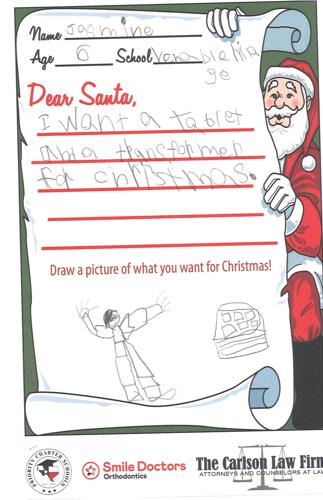 Name Jasmine
Age 6 School Venable Villa
ge
Dear Santa,
I want a tablet
And a transformer
for christmas.
Draw a picture of what you want for Christmas!
PRIORITY CHARTER SCHOOLS
Smile Doctors
Orthodontics
The Carlson Law Firm
ATTORNEYS AND COUNSELORS AT LAW